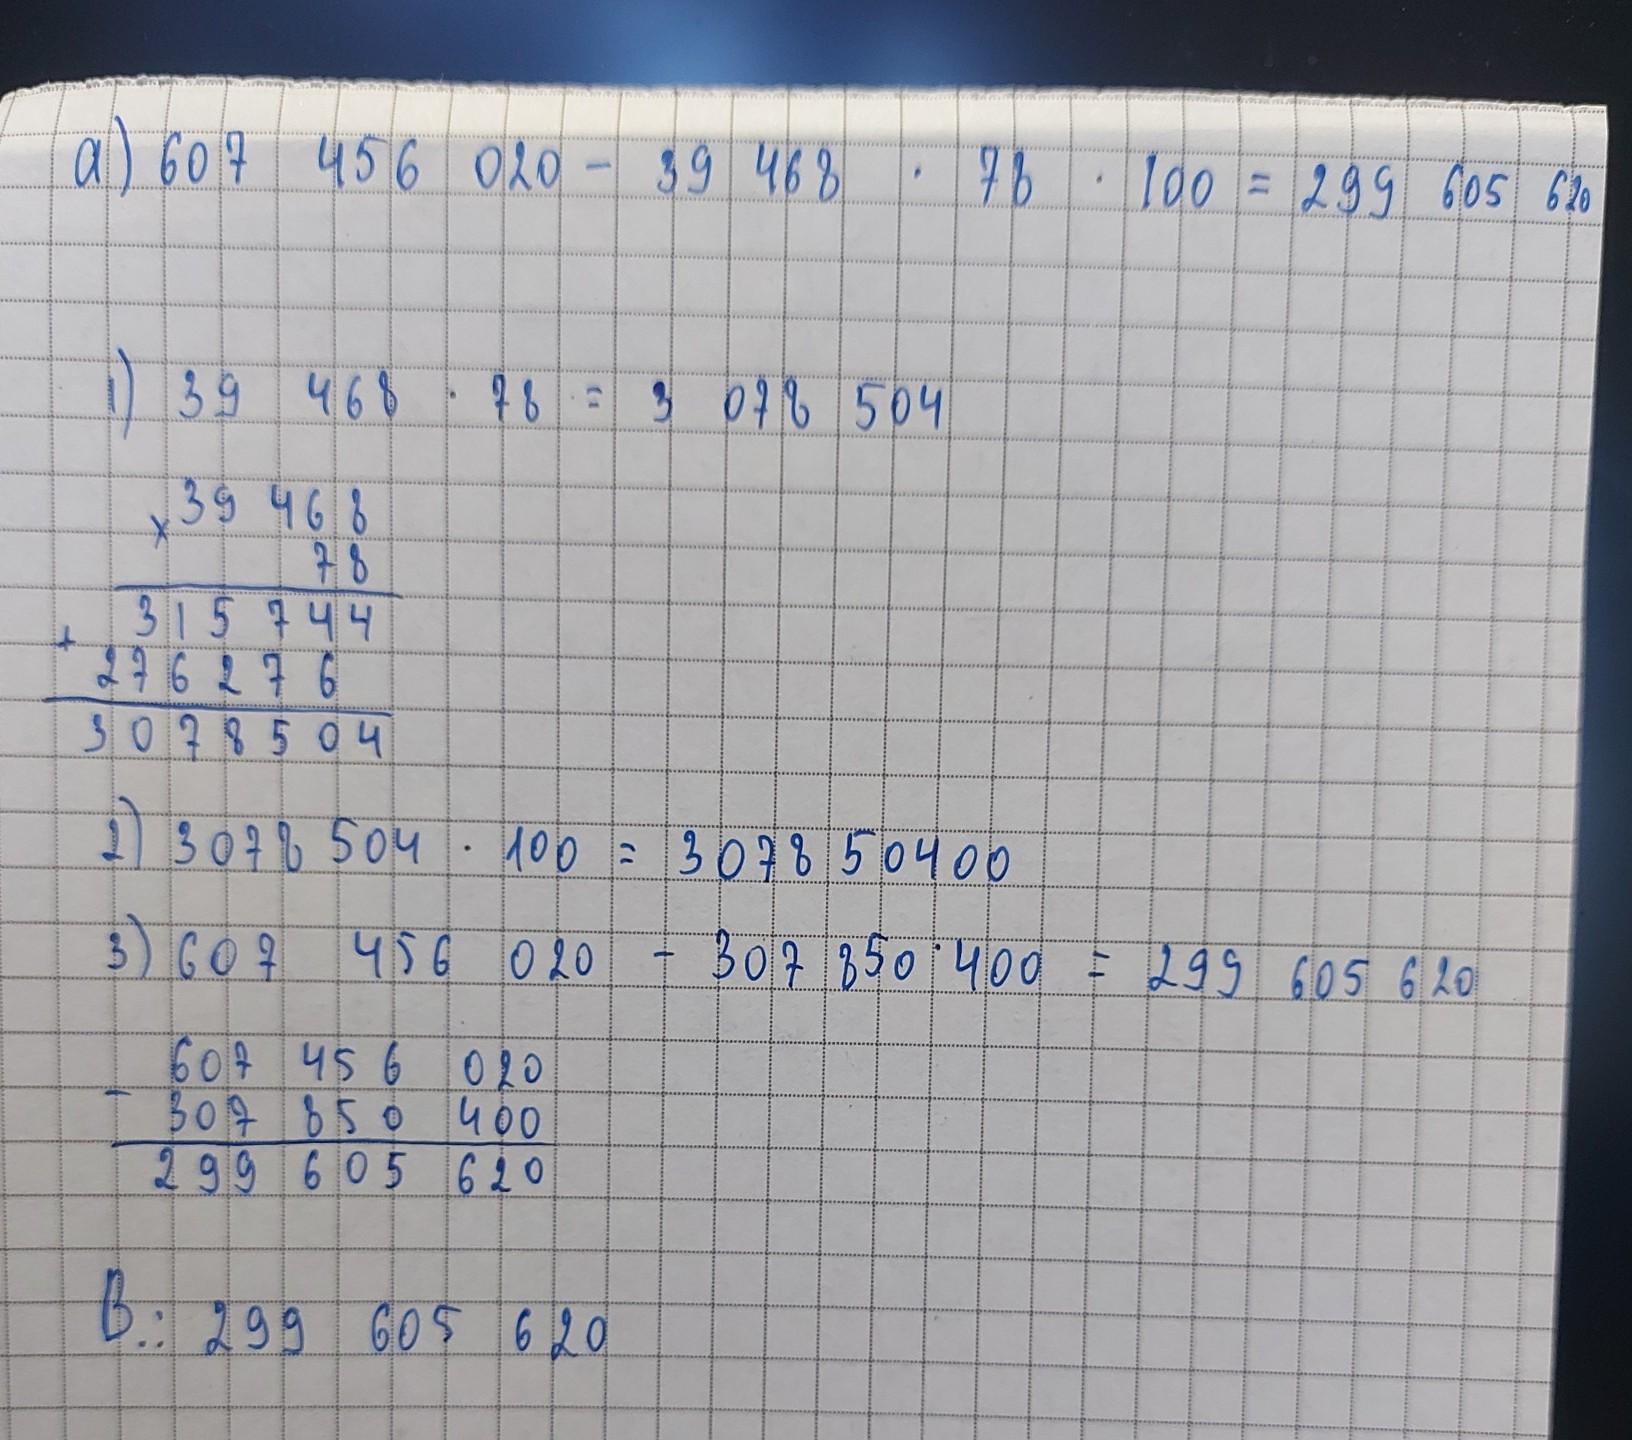 а) 607 456 020 - 39 468 · 78 · 100 = 299 605 620
1) 39 468 · 78 = 3 078 504
39 468
×
78
315 744
+
276 276
3078504
2) 3078 504 · 100 = 307850400
3) 607 456 020 - 307 850 400 = 299 605 620
607 456 020
-
307 850 400
299 605 620
В.: 299 605 620